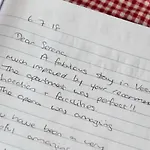 6.7.18
Dear Serena
A fabulous stay in
Much impressed by your
The apartment was perfect!!
location + facilities.
The opera was amazing
have been a very